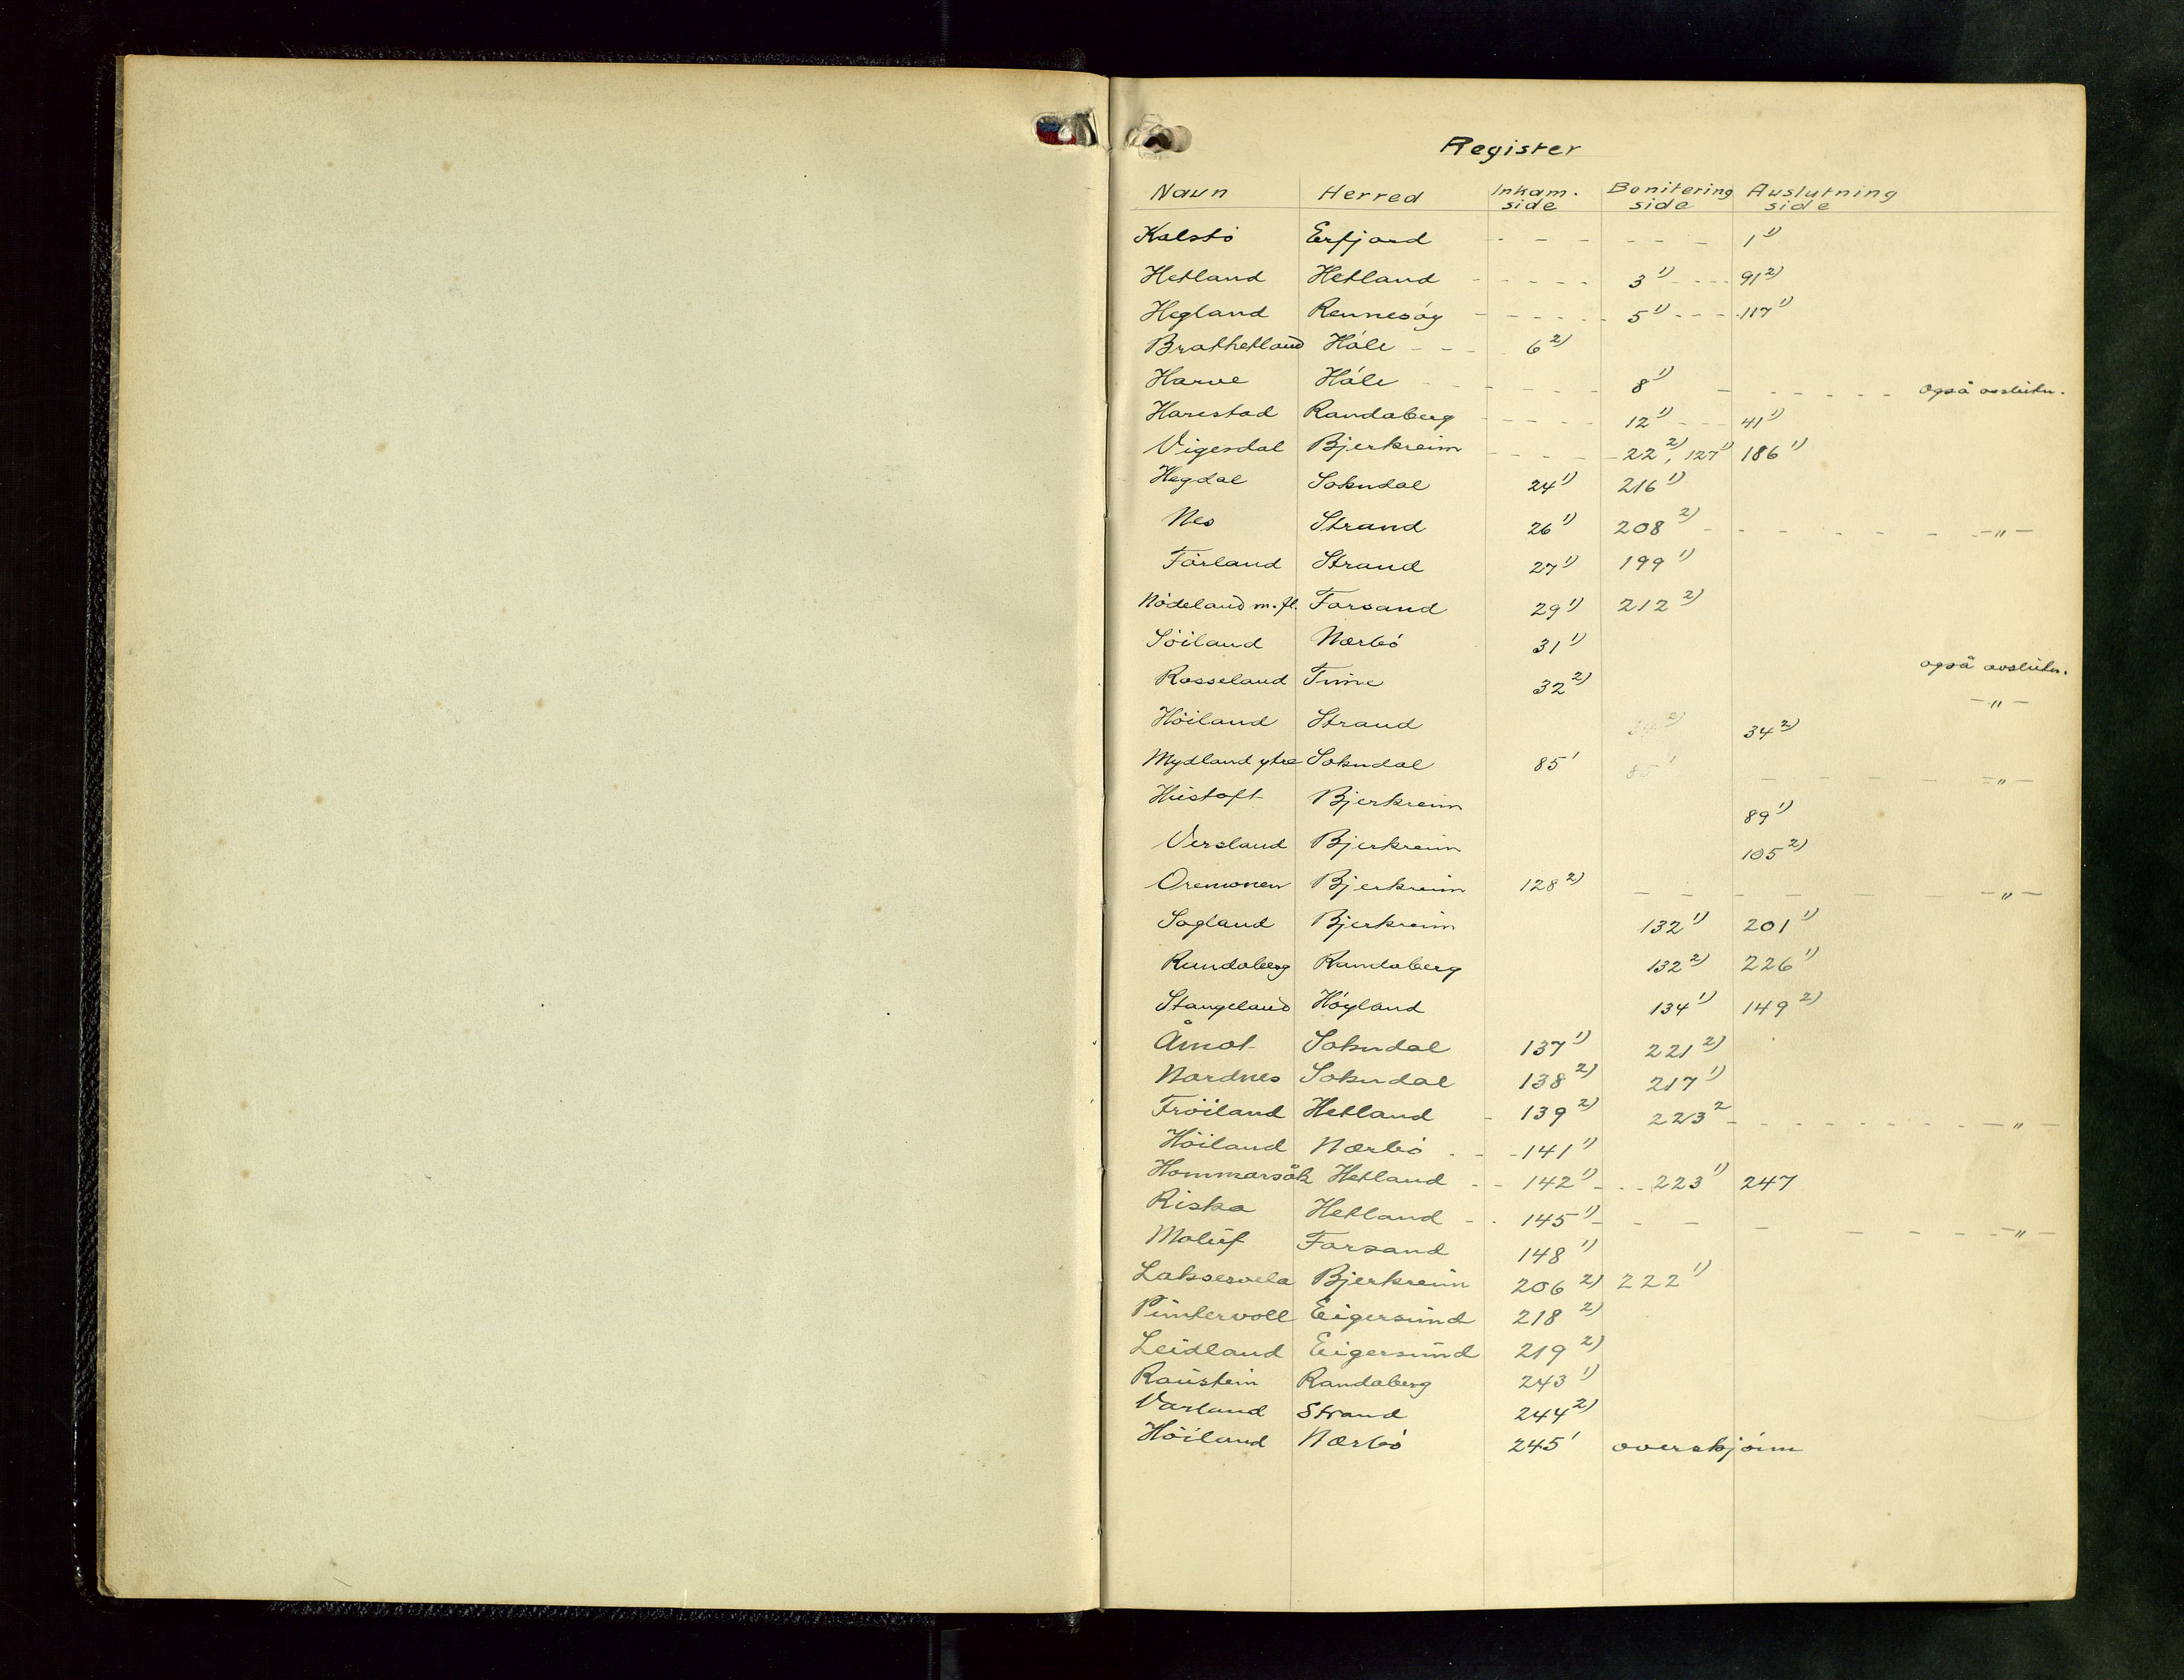 Register
Navn Herred Inkam. side Bonitering side Avslutning side
Kalstö Erfjord - - - - - - 1 1)
Hetland Hetland - - - - - 3 1) - - - - 91 2)
Hegland Rennesöy - - - - - 5 1) - - - 117 1)
Brathetland Håle - - - 6 2)
Harve Håle - - - - - 8 1) - - - - - - også avslutn.
Harestad Randaberg - - - - - 12 1) - - - 41 1)
Vigesdal Bjerkreim - - - - - 22 2), 127 1) 186 1)
Hegdal Sokndal 24 1) 216 1)
Nes Strand 26 1) 208 2) - - - - - - - -"-
Førland Strand 27 1) 199 1)
Nödeland m.fl. Forsand 29 1) 212 2)
Söiland Nærbö 31 1)
Rosseland Time 32 2) også avslutn.
Höiland Strand 34 2) 34 2) -"-
Mydland ytre Sokndal 85 1 85 1 - - - - - - -"-
Hustoft Bjerkreim 89 1)
Versland Bjerkreim 105 2)
Oremonen Bjerkreim 128 2) - - - - - - -"-
Sagland Bjerkreim 132 1) 201 1)
Randaberg Randaberg 132 2) 226 1)
Stangeland Höyland 134 1) 149 2)
Åmot Sokndal 137 1) 221 2)
Nordnes Sokndal 138 2) 217 1)
Fröiland Hetland - 139 2) 223 2 - - - - - - - - -"-
Höiland Nærbö - - - 141 1)
Hommarsåk Hetland - - 142 1) - - - 223 1) 247
Riska Hetland - - 145 1) - - - - - - - -"-
Moluf Forsand 148 1)
Laksesvela Bjerkreim 206 2) 222 1)
Puntervoll Eigersund 218 2)
Leidland Eigersund 219 2)
Raustein Randaberg 243 1)
Varland Strand 244 2)
Höiland Nærbö 245 1 overskjönn